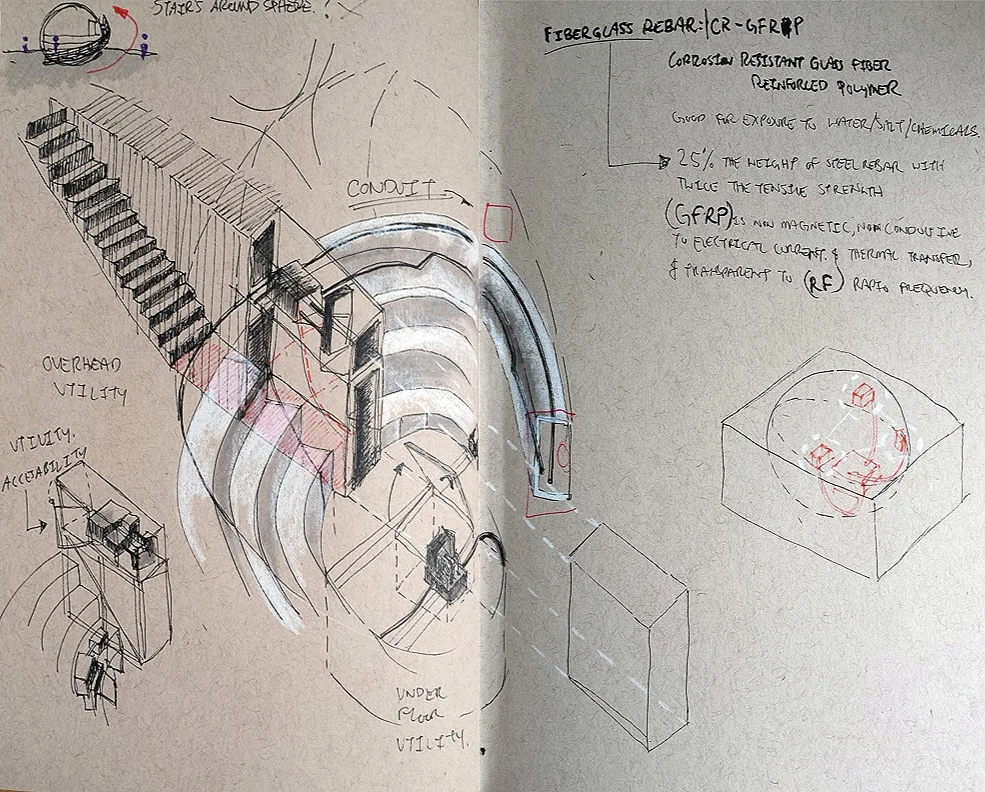 STAIRS AROUND SPHERE.
FIBERGLASS REBAR: / CR-GFRP
CORROSION RESISTANT GLASS FIBER
REINFORCED POLYMER
GOOD FOR EXPOSURE TO WATER/SALT/CHEMICALS.
25% THE WEIGHT OF STEEL REBAR WITH
TWICE THE TENSILE STRENGTH
(GFRP) IS NON MAGNETIC, NON CONDUCTIVE
TO ELECTRICAL CURRENT & THERMAL TRANSFER,
& TRANSPARENT TO (RF) RADIO FREQUENCY.
CONDUIT
OVERHEAD
UTILITY
UTILITY.
ACCESABILITY
UNDER
FLOOR
UTILITY.